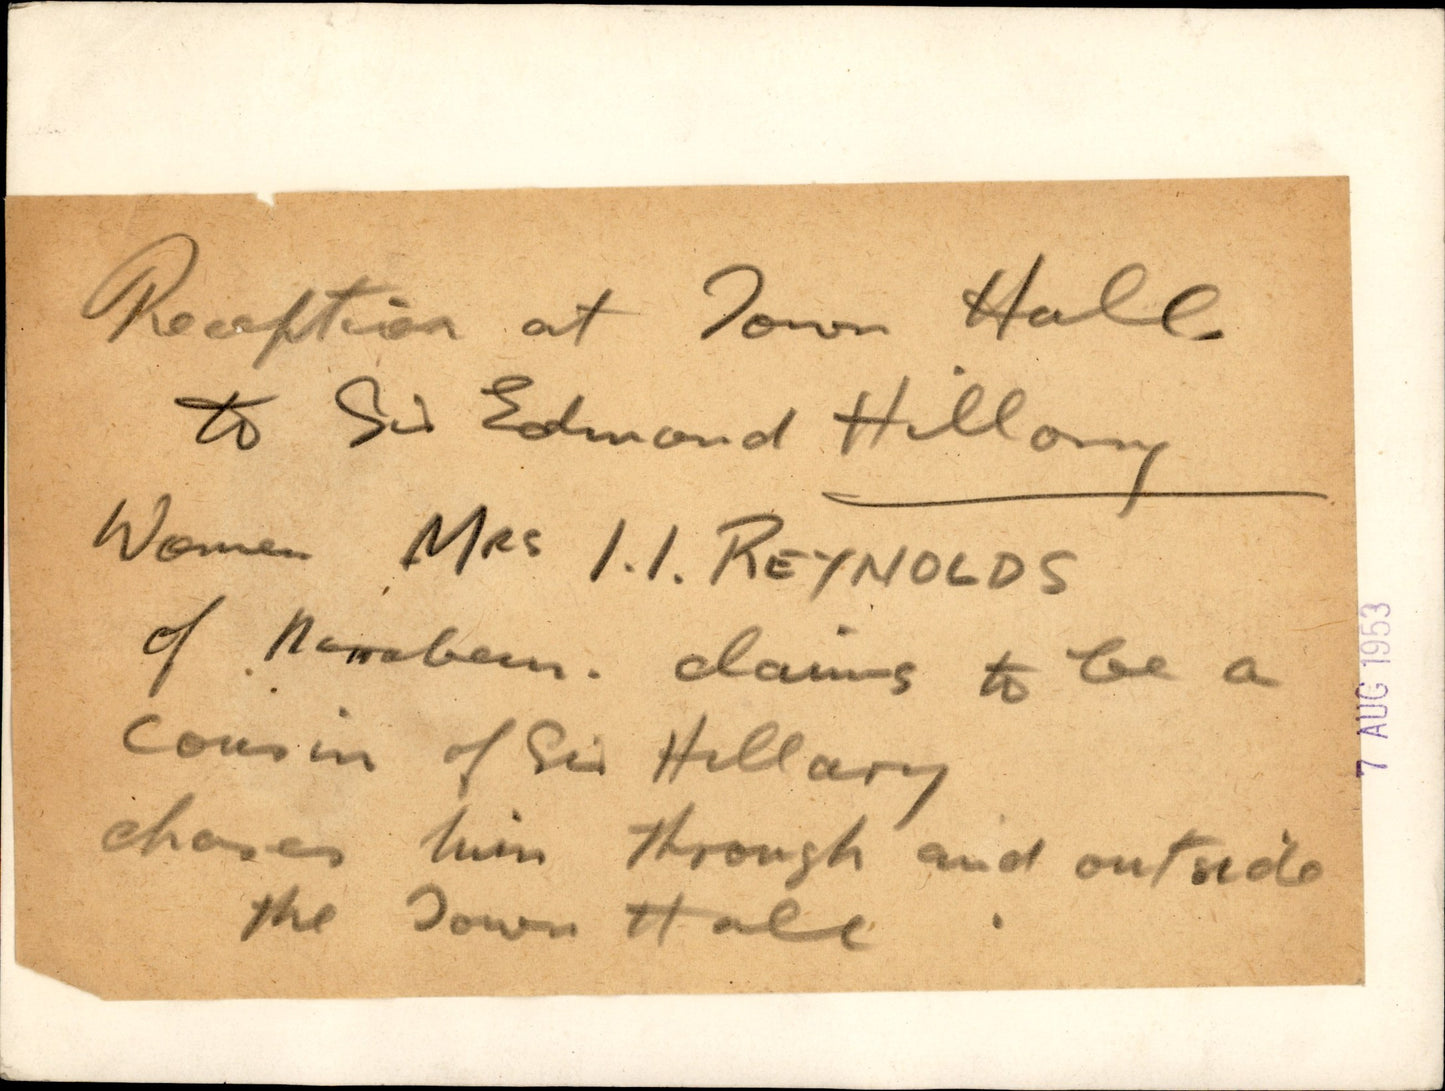 Reception at Town Hall
to Sir Edmond Hillary
Women MRS I.I. REYNOLDS
of Narrabeen. claims to be a
cousin of Sir Hillary
chases him through and outside
the Town Hall.
7 AUG 1953